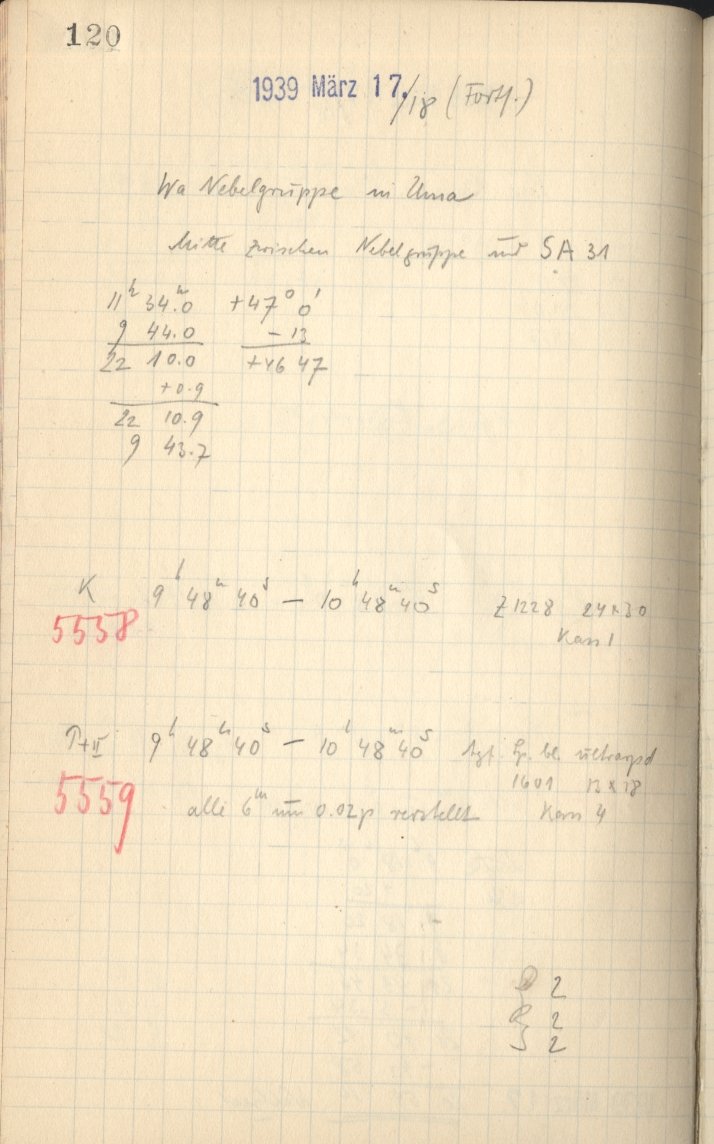 120
1939 März 17./18 (Forts.)
Wa Nebelgruppe in Uma
Mitte zwischen Nebelgruppe und SA 31
11ʰ 34.ᵐ0 +47° 0'
9 44.0 – 13
22 10.0 +46 47
+0.9
22 10.9
9 43.7
K 9ʰ 48ᵐ 40ˢ — 10ʰ 48ᵐ 40ˢ Z 1228 24×30
5558 Kass 1
P+II 9ʰ 48ᵐ 40ˢ — 10ʰ 48ᵐ 40ˢ Agf. bl. ultrarapid
1601 13×18
5559 alle 6ᵐ um 0.02p verstellt Kass 4
2
2
2